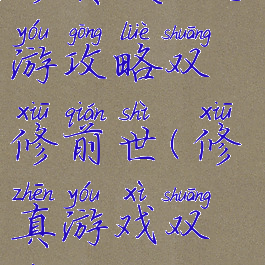 yóu gōng lüè shuāng
游攻略双
xiū qián shì xiū
修前世(修
zhēn yóu xì shuāng
真游戏双